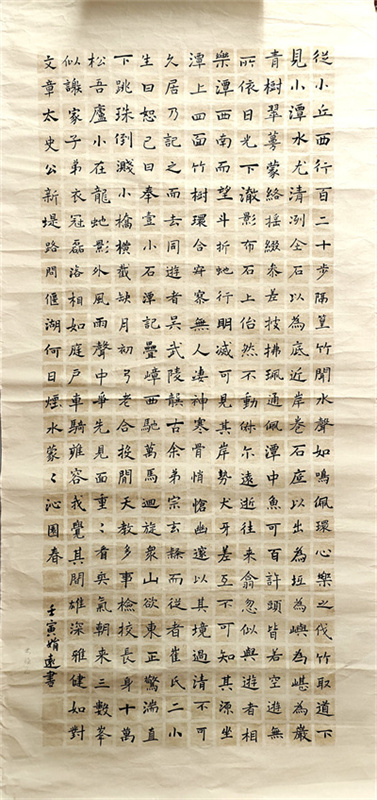 從小丘西行百二十步隔篁竹聞水聲如鳴佩環心樂之伐竹取道下
見小潭水尤清冽全石以為底近岸卷石底以出為坻為嶼為嵁為巖
青樹翠蔓蒙絡搖綴參差披拂珮通佩潭中魚可百許頭皆若空遊無
所依日光下澈影布石上佁然不動俶尔遠逝往來翕忽似與遊者相
樂潭西南而望斗折虵行明滅可見其岸勢犬牙差互不可知其源坐
潭上四面竹樹環合寂寥無人凄神寒骨悄愴幽邃以其境過清不可
久居乃記之而去同遊者吳武陵龔古余弟宗玄隸而從者崔氏二小
生曰恕己曰奉壹小石潭記疊嶂西馳萬馬迴旋衆山欲東正驚湍直
下跳珠倒濺小橋橫截缺月初弓老合投閒天教多事檢校長身十萬
松吾廬小在龍虵影外風雨聲中爭先見面重〻看爽氣朝來三數峯
似謝家子弟衣冠磊落相如庭戶車騎雍容我覺其間雄深雅健如對
文章太史公新堤路問偃湖何日煙水蒙〻沁園春
壬寅書